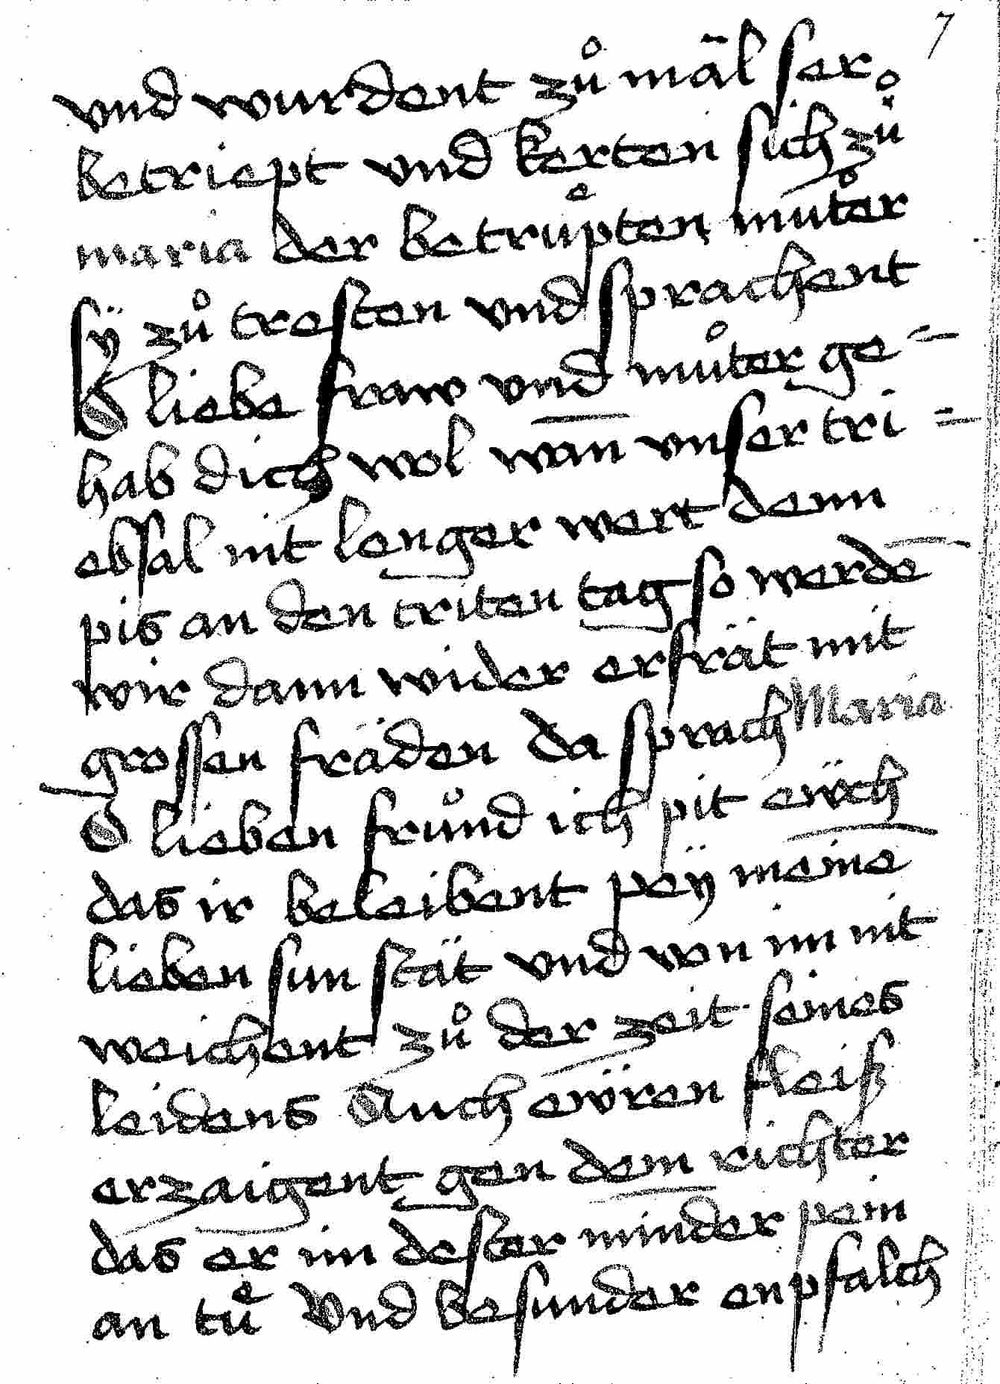 7
vnd wurdent zů mãl ser
betriept vnd kerten sich zů
maria der betrüͤpten můter
sÿ zů tresten vnd sprachent
O liebe fraw vnd můter ge=
hab dich wol wan̄ vnser tri=
ebsal nit lenger wert denn
pis an den triten tag so werdē
wir dann wider erfrät mit
grossen fräden da sprach Maria
O lieben frůnd ich pit eẅch
das ir beleibent peÿ meinē
lieben sun stät vnd von im nit
weichent zů der zeit seines
leidens Auch eẅren fleiß
erzaigent gen dem richter
das er im dester minder pein
an tuͤ Vnd besunder enpfalch